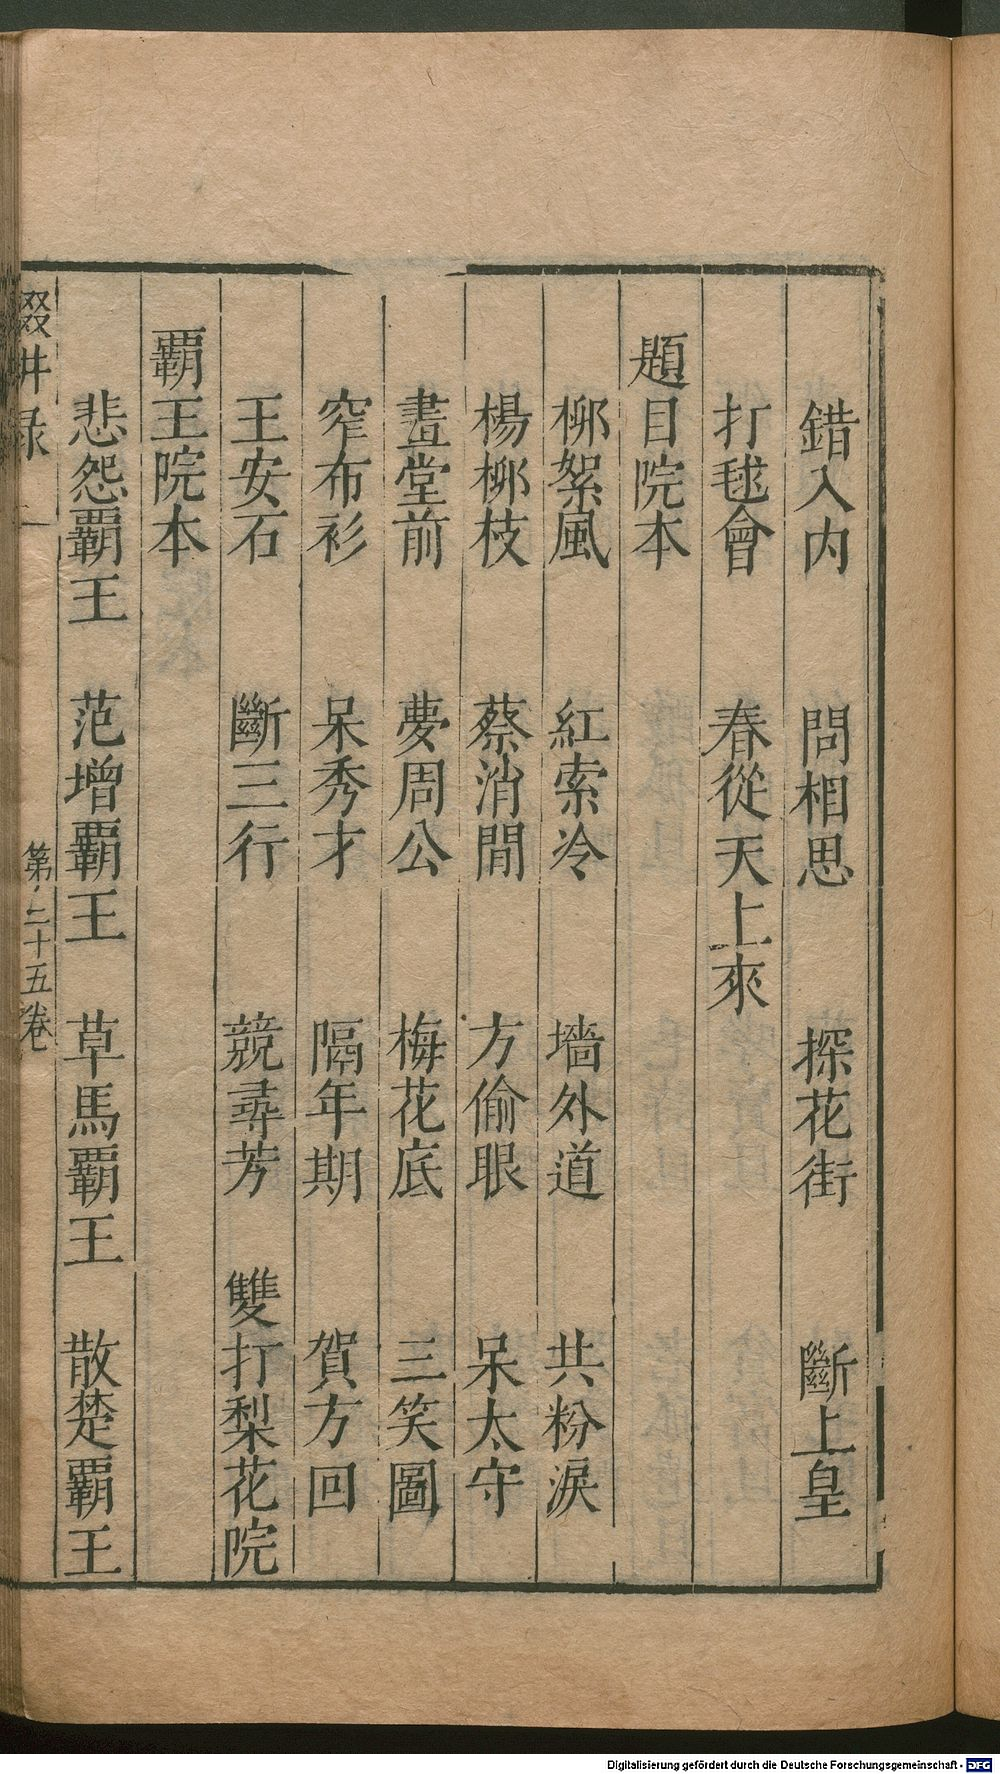 錯入内　問相思　探花街　斷上皇
打毬會　春從天上來
題目院本
柳絮風　紅索冷　墻外道　共粉淚
楊柳枝　蔡消閒　方偷眼　呆太守
畫堂前　夢周公　梅花底　三笑圖
窄布衫　呆秀才　隔年期　賀方回
王安石　斷三行　競尋芳　雙打梨花院
覇王院本
悲怨覇王　范增覇王　草馬覇王　散楚覇王
第二十五卷
Digitalisierung gefördert durch die Deutsche Forschungsgemeinschaft - DFG